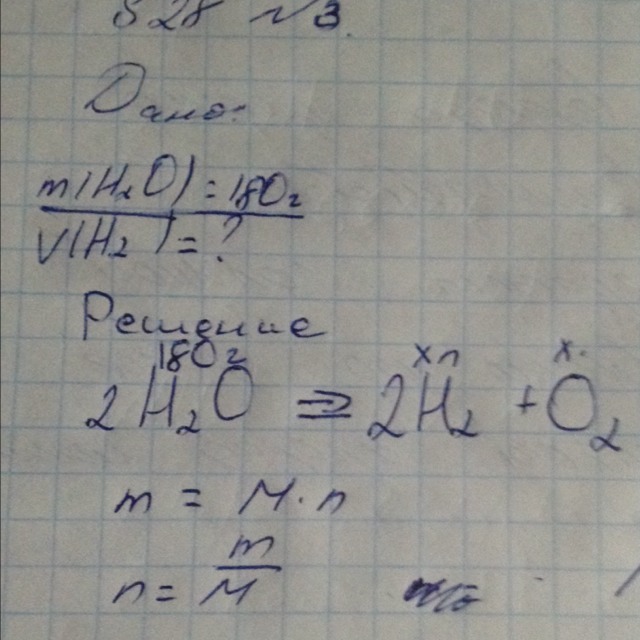 § 28 №3.
Дано:
m(H₂O) = 180г
V(H₂) = ?
Решение
180г хл х.
2H₂O => 2H₂ + O₂
m = M · n
n = m/M